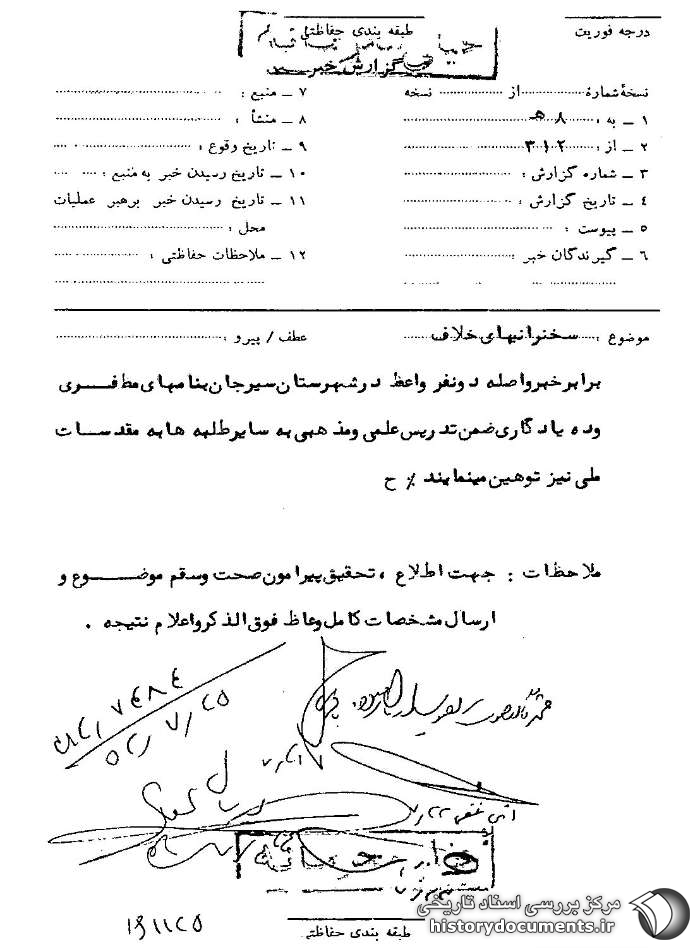 درجه فوریت
طبقه بندی حفاظتی
گزارش خبر
نسخهٔ شمارهٔ ........ از ........ نسخه
۱ ـ به : ۸ هـ
۲ ـ از : ۳۱۲
۳ ـ شماره گزارش :
۴ ـ تاریخ گزارش :
۵ ـ پیوست :
۶ ـ گیرندگان خبر :
۷ ـ منبع :
۸ ـ منشأ :
۹ ـ تاریخ وقوع :
۱۰ ـ تاریخ رسیدن خبر به منبع :
۱۱ ـ تاریخ رسیدن خبر برهبر عملیات
محل :
۱۲ ـ ملاحظات حفاظتی :
موضوع : سخنرانیهای خلاف
عطف / پیرو :
برابر خبر واصله دونفر واعظ در شهرستان سیرجان بنامهای مظفری
وده یادگاری ضمن تدریس علمی ومذهبی به سایر طلبه ها به مقدسات
ملی نیز توهین مینمایند ٪ ح
ملاحظات : جهت اطلاع ، تحقیق پیرامون صحت وسقم موضوع و
ارسال مشخصات کامل وعاظ فوق الذکر واعلام نتیجه .
طبقه بندی حفاظتی
مرکز بررسی اسناد تاریخی
historydocuments.ir